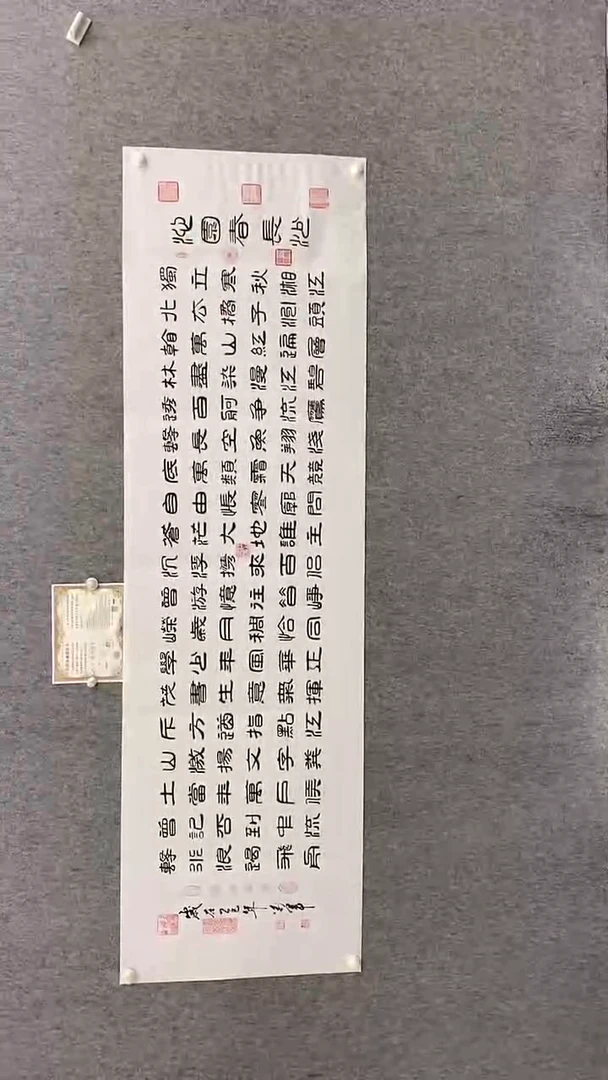 沁園春長沙
獨立寒秋湘江
北去橘子洲頭
看萬山紅遍層
林盡染漫江碧
透百舸爭流鷹
擊長空魚翔淺
底萬類霜天競
自由悵寥廓問
蒼茫大地誰主
沉浮攜來百侶
曾游憶往昔崢
嶸歲月稠恰同
學少年風華正
茂書生意氣揮
斥方遒指點江
山激揚文字糞
土當年萬戶侯
曾記否到中流
擊水浪遏飛舟
歲在乙巳年